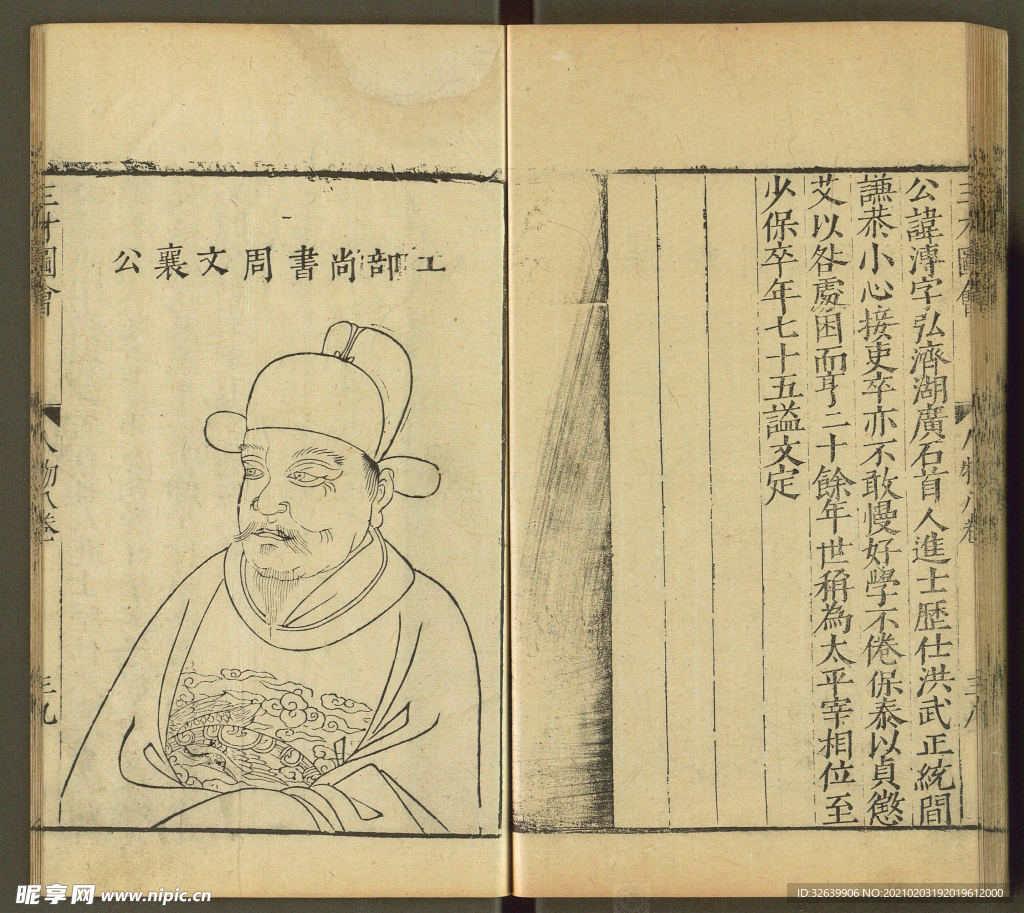 三才圖會
人物八卷
三八
公諱溥字弘濟湖廣石首人進士歷仕洪武正統間
謙恭小心接吏卒亦不敢慢好學不倦保泰以貞懲
艾以咎處困而亨二十餘年世稱為太平宰相位至
少保卒年七十五謚文定
工部尚書周文襄公
三才圖會
人物八卷
三九
昵享网 www.nipic.cn
ID:32639906 NO:20210203192019612000